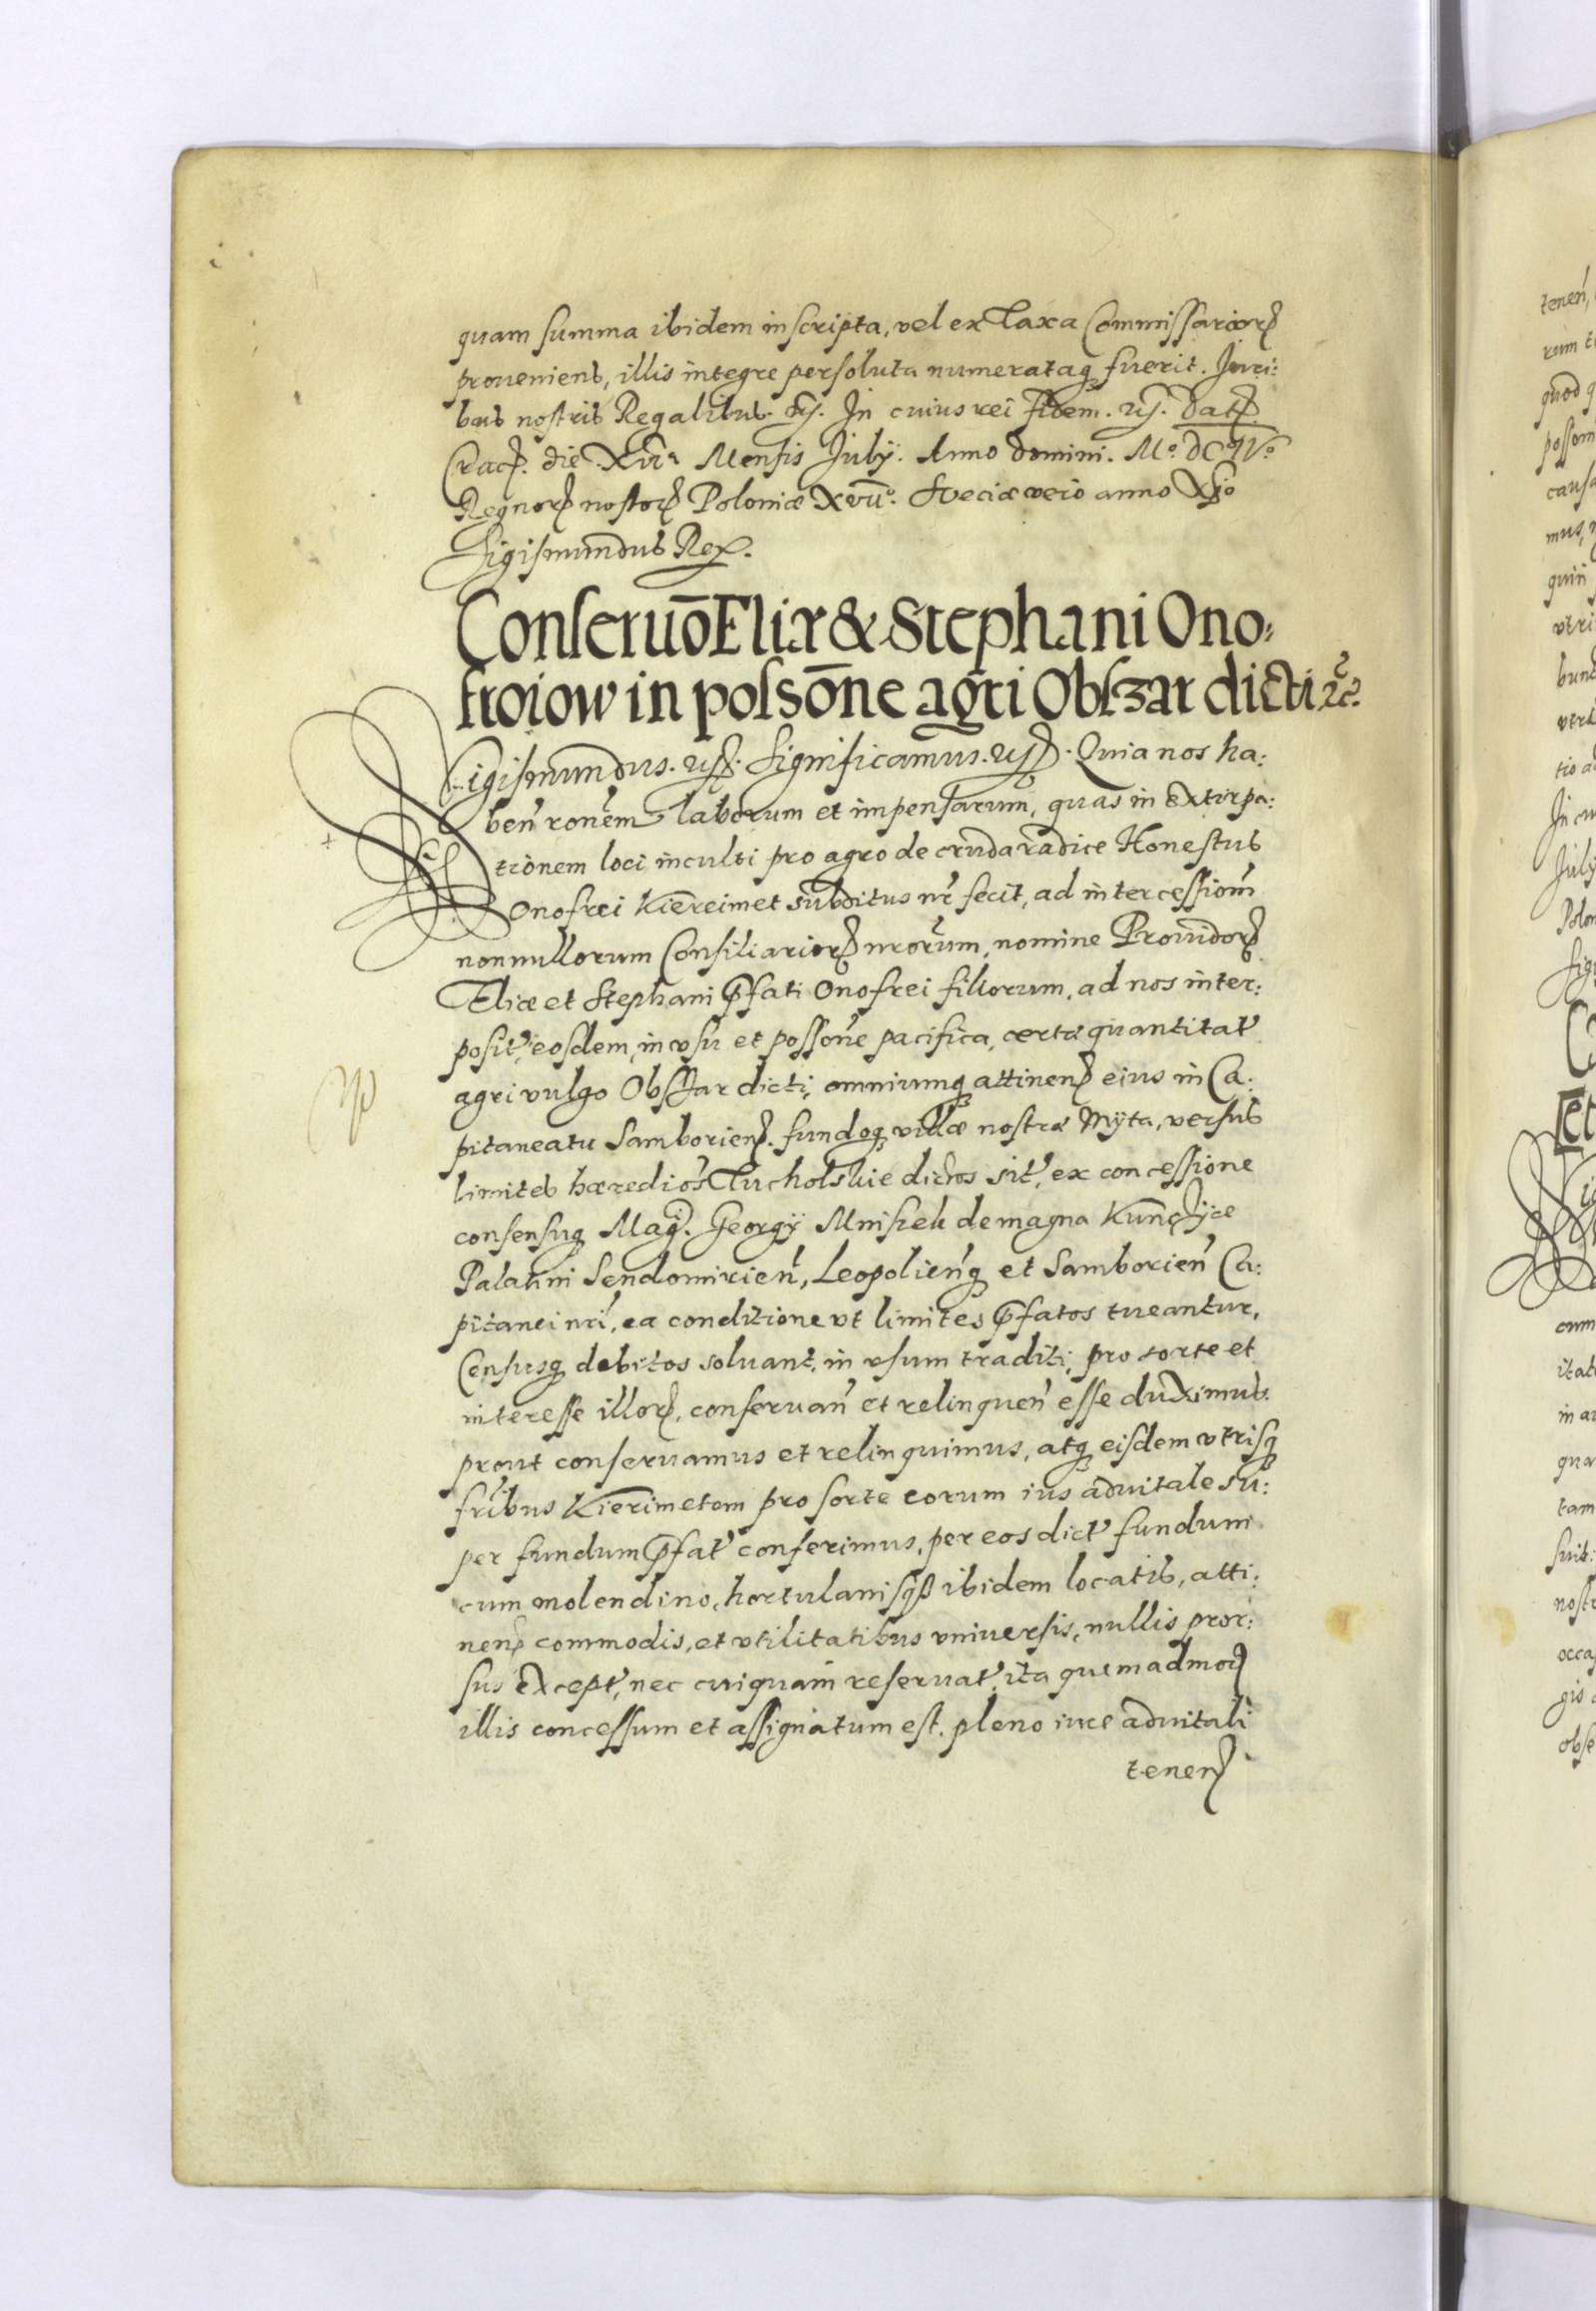 quam summa ibidem inscripta, vel ex Taxa Commissarior
proueniens, illis integre persoluta numerataq fuerit. Juri:
bus nostris Regalibus. etc. In cuius rei fidem. etc. Dat
Crac. die. XVI Mensis July. Anno Domini. Mo. DC IVo
Regnor nostor Poloniæ XVIIo. Sveciæ vero anno XIo
Sigismundus Rex.
Conseruõ Eliæ & Stephani Ono:
froiow in possõne agri Obszar dicti etc.
Sigismundus. etc. Significamus. etc. Quia nos ha:
ben ronem laborum et impensarum, quas in extirpa:
tionem loci inculti pro agro de cruda radice Honestus
Onofrei Kiereimet subditus nr fecit, ad intercession
nonnullorum Consiliarior nrorum, nomine Prouidor
Eliæ et Stephani pfati Onofrei filiorum, ad nos inter:
posit, eosdem, in vsu et possone pacifica, certæ quantitat
agri vulgo Obszar dicti, omniumq attinen eius in Ca:
pitaneatu Samborien. fundoq villæ nostræ Myta, versus
limites hæredios Tucholskie dictos sit, ex concessione
consensuq Mag. Georgy Mniszek de magna Kunczyce
Palatini Sendomirien, Leopolienq et Samborien Ca:
pitanei nri, ea conditione vt limites pfatos tueantur,
Censusq debitos soluant, in vsum traditi, pro sorte et
interesse illor, conseruan et relinquen esse duximus.
prout conseruamus et relinquimus, atq eisdem vtrisq
fribus Kierimetom pro sorte eorum ius aduitale su:
per fundum pfat conferimus, per eos dict fundum
cum molendino, hortulanisq ibidem locatis, atti:
nen commodis, et vtilitatibus vniuersis, nullis pror:
sus except, nec cuiquam reseruat, ita quemadmo
illis concessum et assignatum est. pleno iure aduitali
tenen